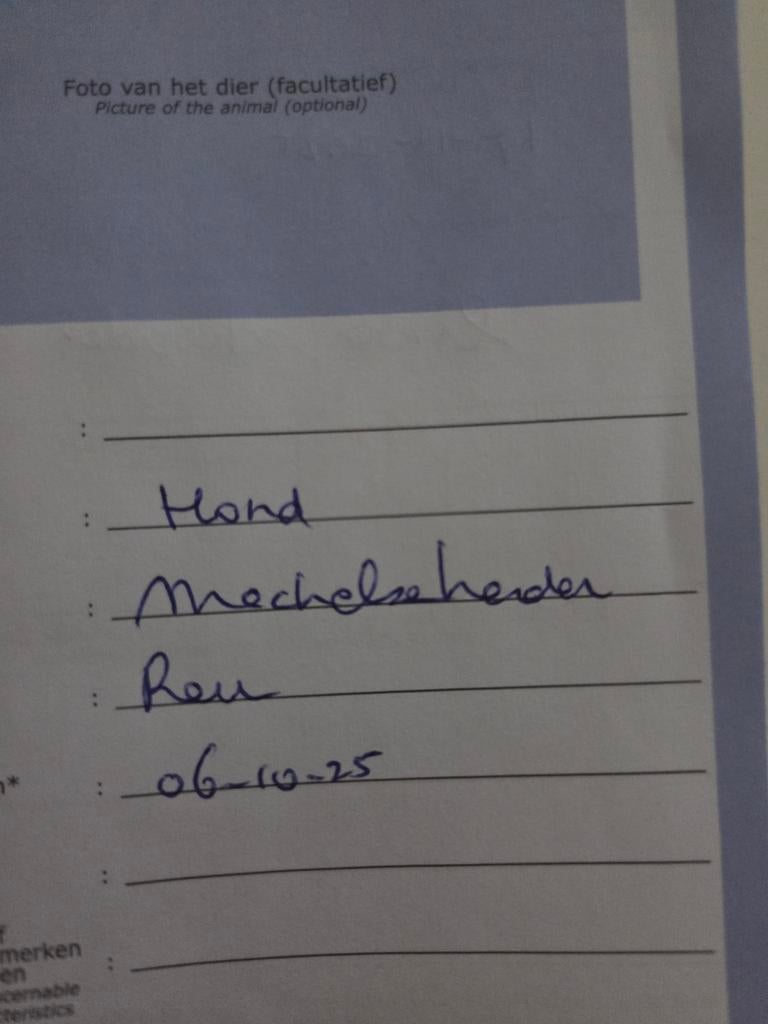 Foto van het dier (facultatief)
Picture of the animal (optional)
:
: Hond
: Mechelse herder
: Reu
n* : 06-10-25
:
merken :
en
cernable
teristics